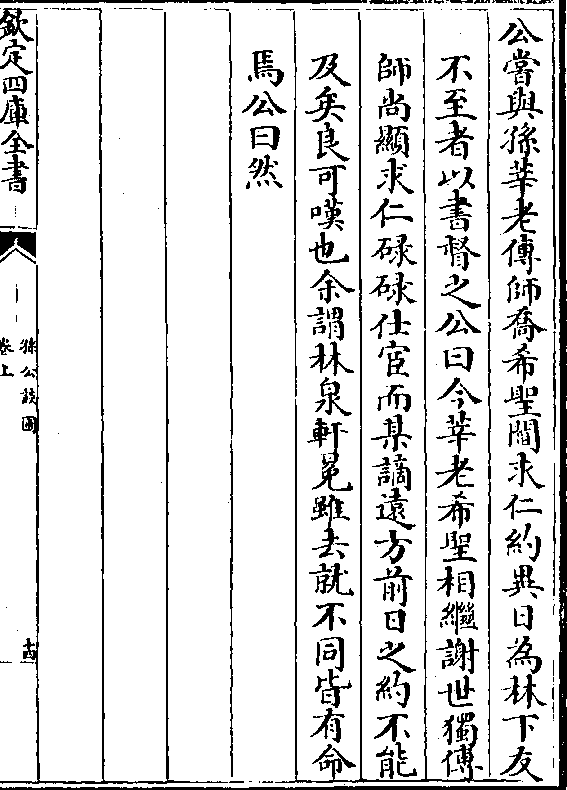 公嘗與孫莘老傅師喬希聖閻求仁約異日為林下友
不至者以書督之公曰今莘老希聖相繼謝世獨傅
師尚顯求仁碌碌仕宦而某謫遠方前日之約不能
及矣良可嘆也余謂林泉軒冕雖去就不同皆有命
焉公曰然
欽定四庫全書
孫公談圃
卷上
十四